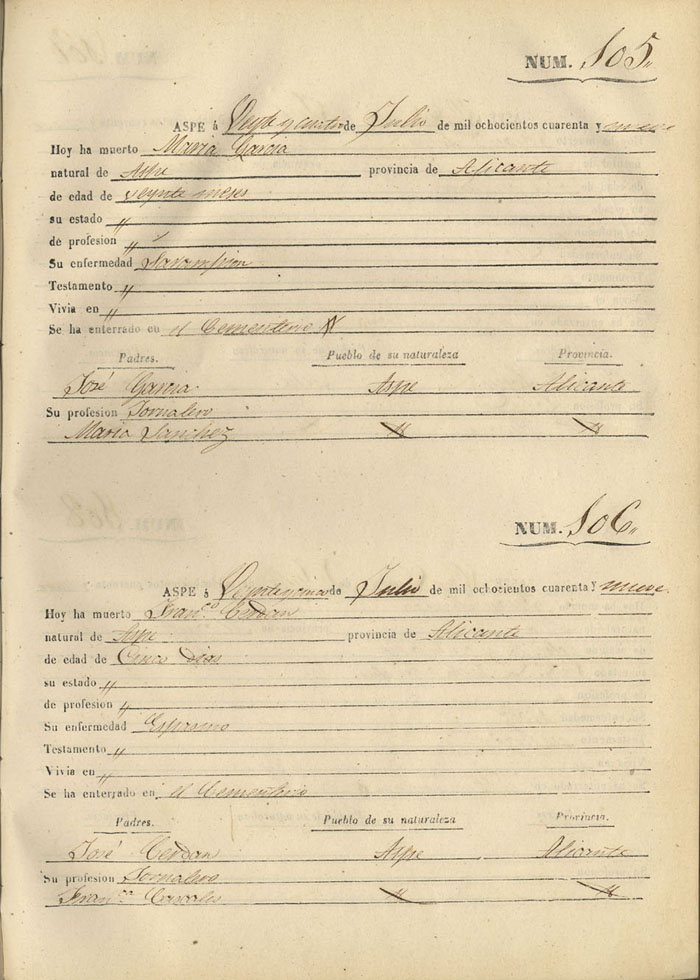 NUM. 105,,
ASPE á Veyte y cuatro de Julio de mil ochocientos cuarenta y nueve
Hoy ha muerto Maria Garcia
natural de Aspe provincia de Alicante
de edad de veynte meses
su estado ,,
de profesion ,,
Su enfermedad Sarampion
Testamento ,,
Vivia en ,,
Se ha enterrado en el Cementerio
Padres. Pueblo de su naturaleza Provincia.
José Garcia Aspe Alicante
Su profesion Jornalero
Maria Sanchez ,, ,,
NUM. 106,,
ASPE á Veyntecinco de Julio de mil ochocientos cuarenta y nueve.
Hoy ha muerto Fran.co Cerdan
natural de Aspe provincia de Alicante
de edad de Cinco dias
su estado ,,
de profesion ,,
Su enfermedad Espasmo
Testamento ,,
Vivia en ,,
Se ha enterrado en el Cementerio
Padres. Pueblo de su naturaleza Provincia.
José Cerdan Aspe Alicante
Su profesion Jornalero
Fran.ca ,, ,,